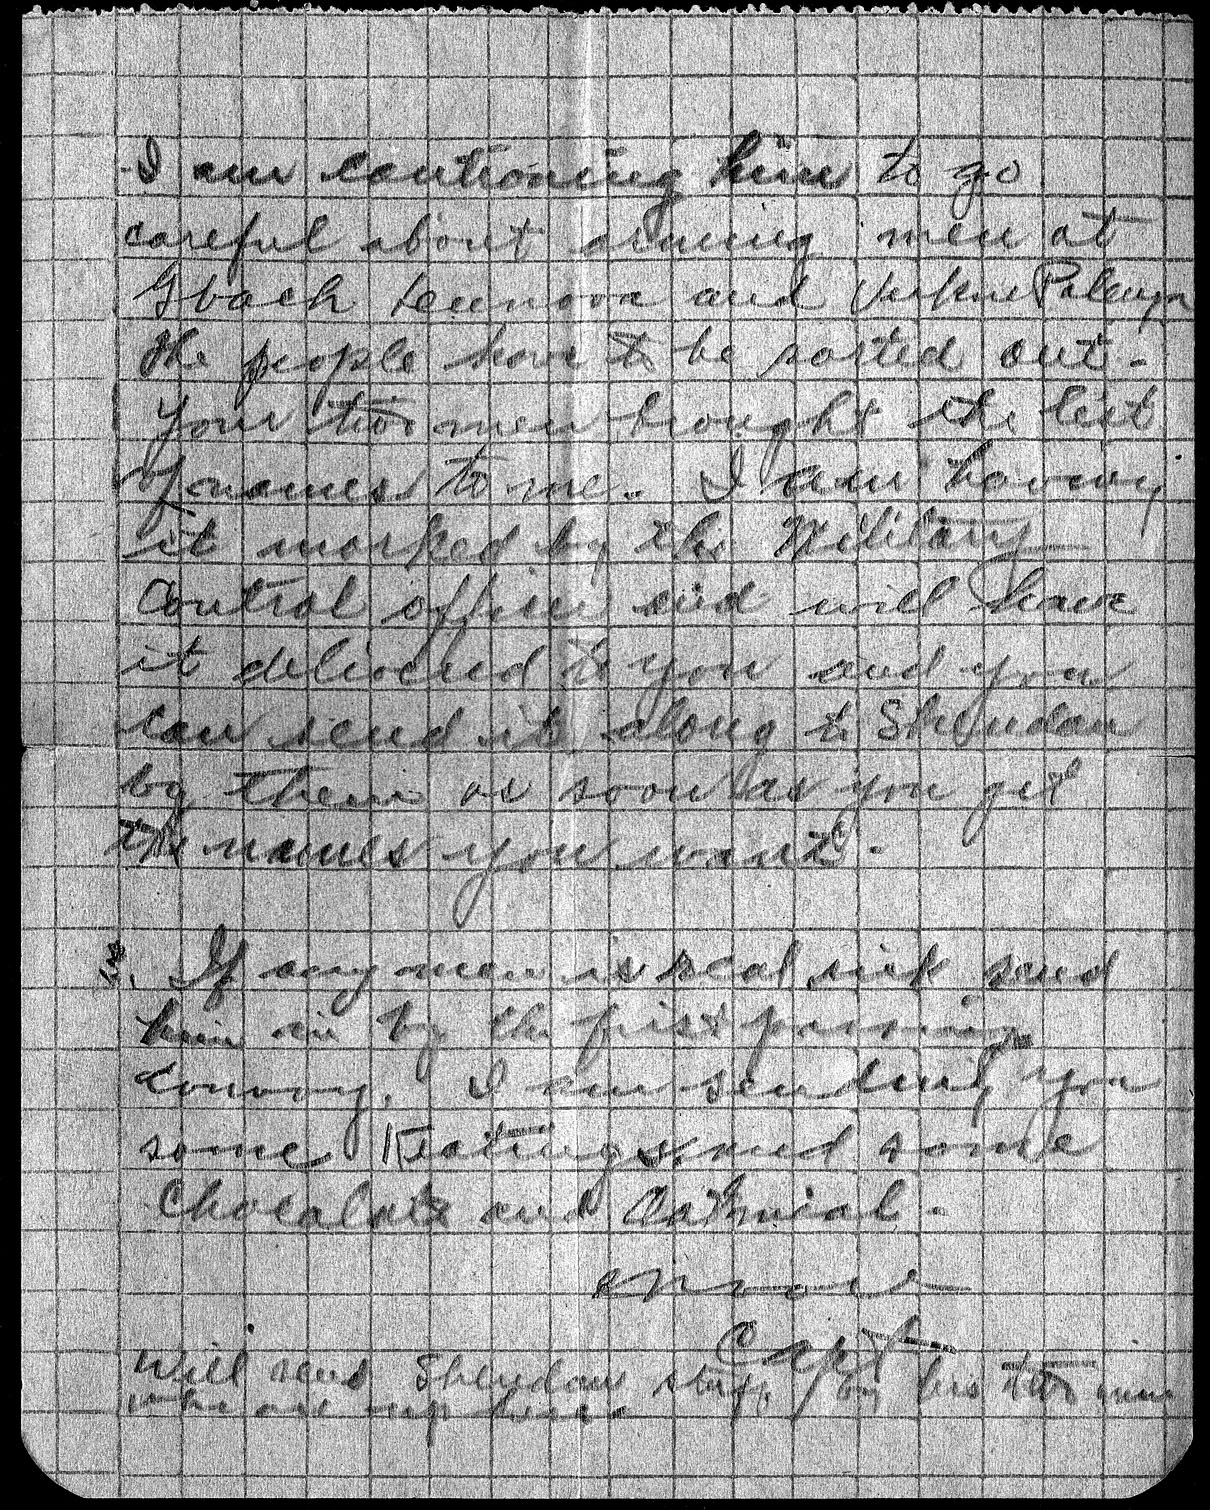 I am cautioning him to go
careful about arming men at
and
The people have to be sorted out.
Your two men brought the list
of names to me. I am having
it marked by the Military
Control officer and will have
it delivered to you and you
can send it along to Sheridan
by them as soon as you get
the names you want.
If any man is real sick send
him in by the first passing
convoy. I am sending you
some Keatings and some
Chocolate and
Capt
Will send Sheridan stuff by his two men
who are up here